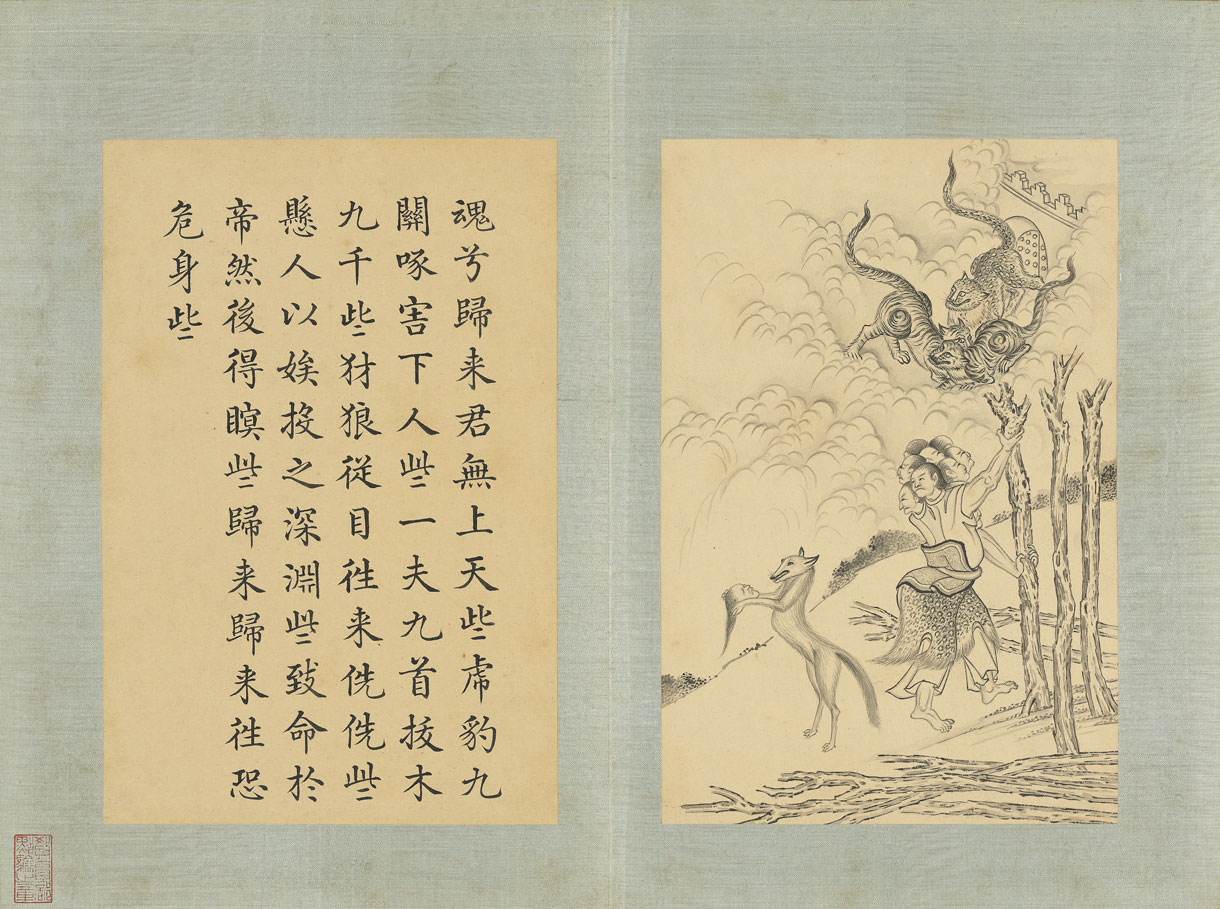 魂兮歸来君無上天些虎豹九
關啄害下人些一夫九首拔木
九千些犲狼從目徃来侁侁些
懸人以娭投之深淵些致命於
帝然後得瞑些歸来歸来徃恐
危身些